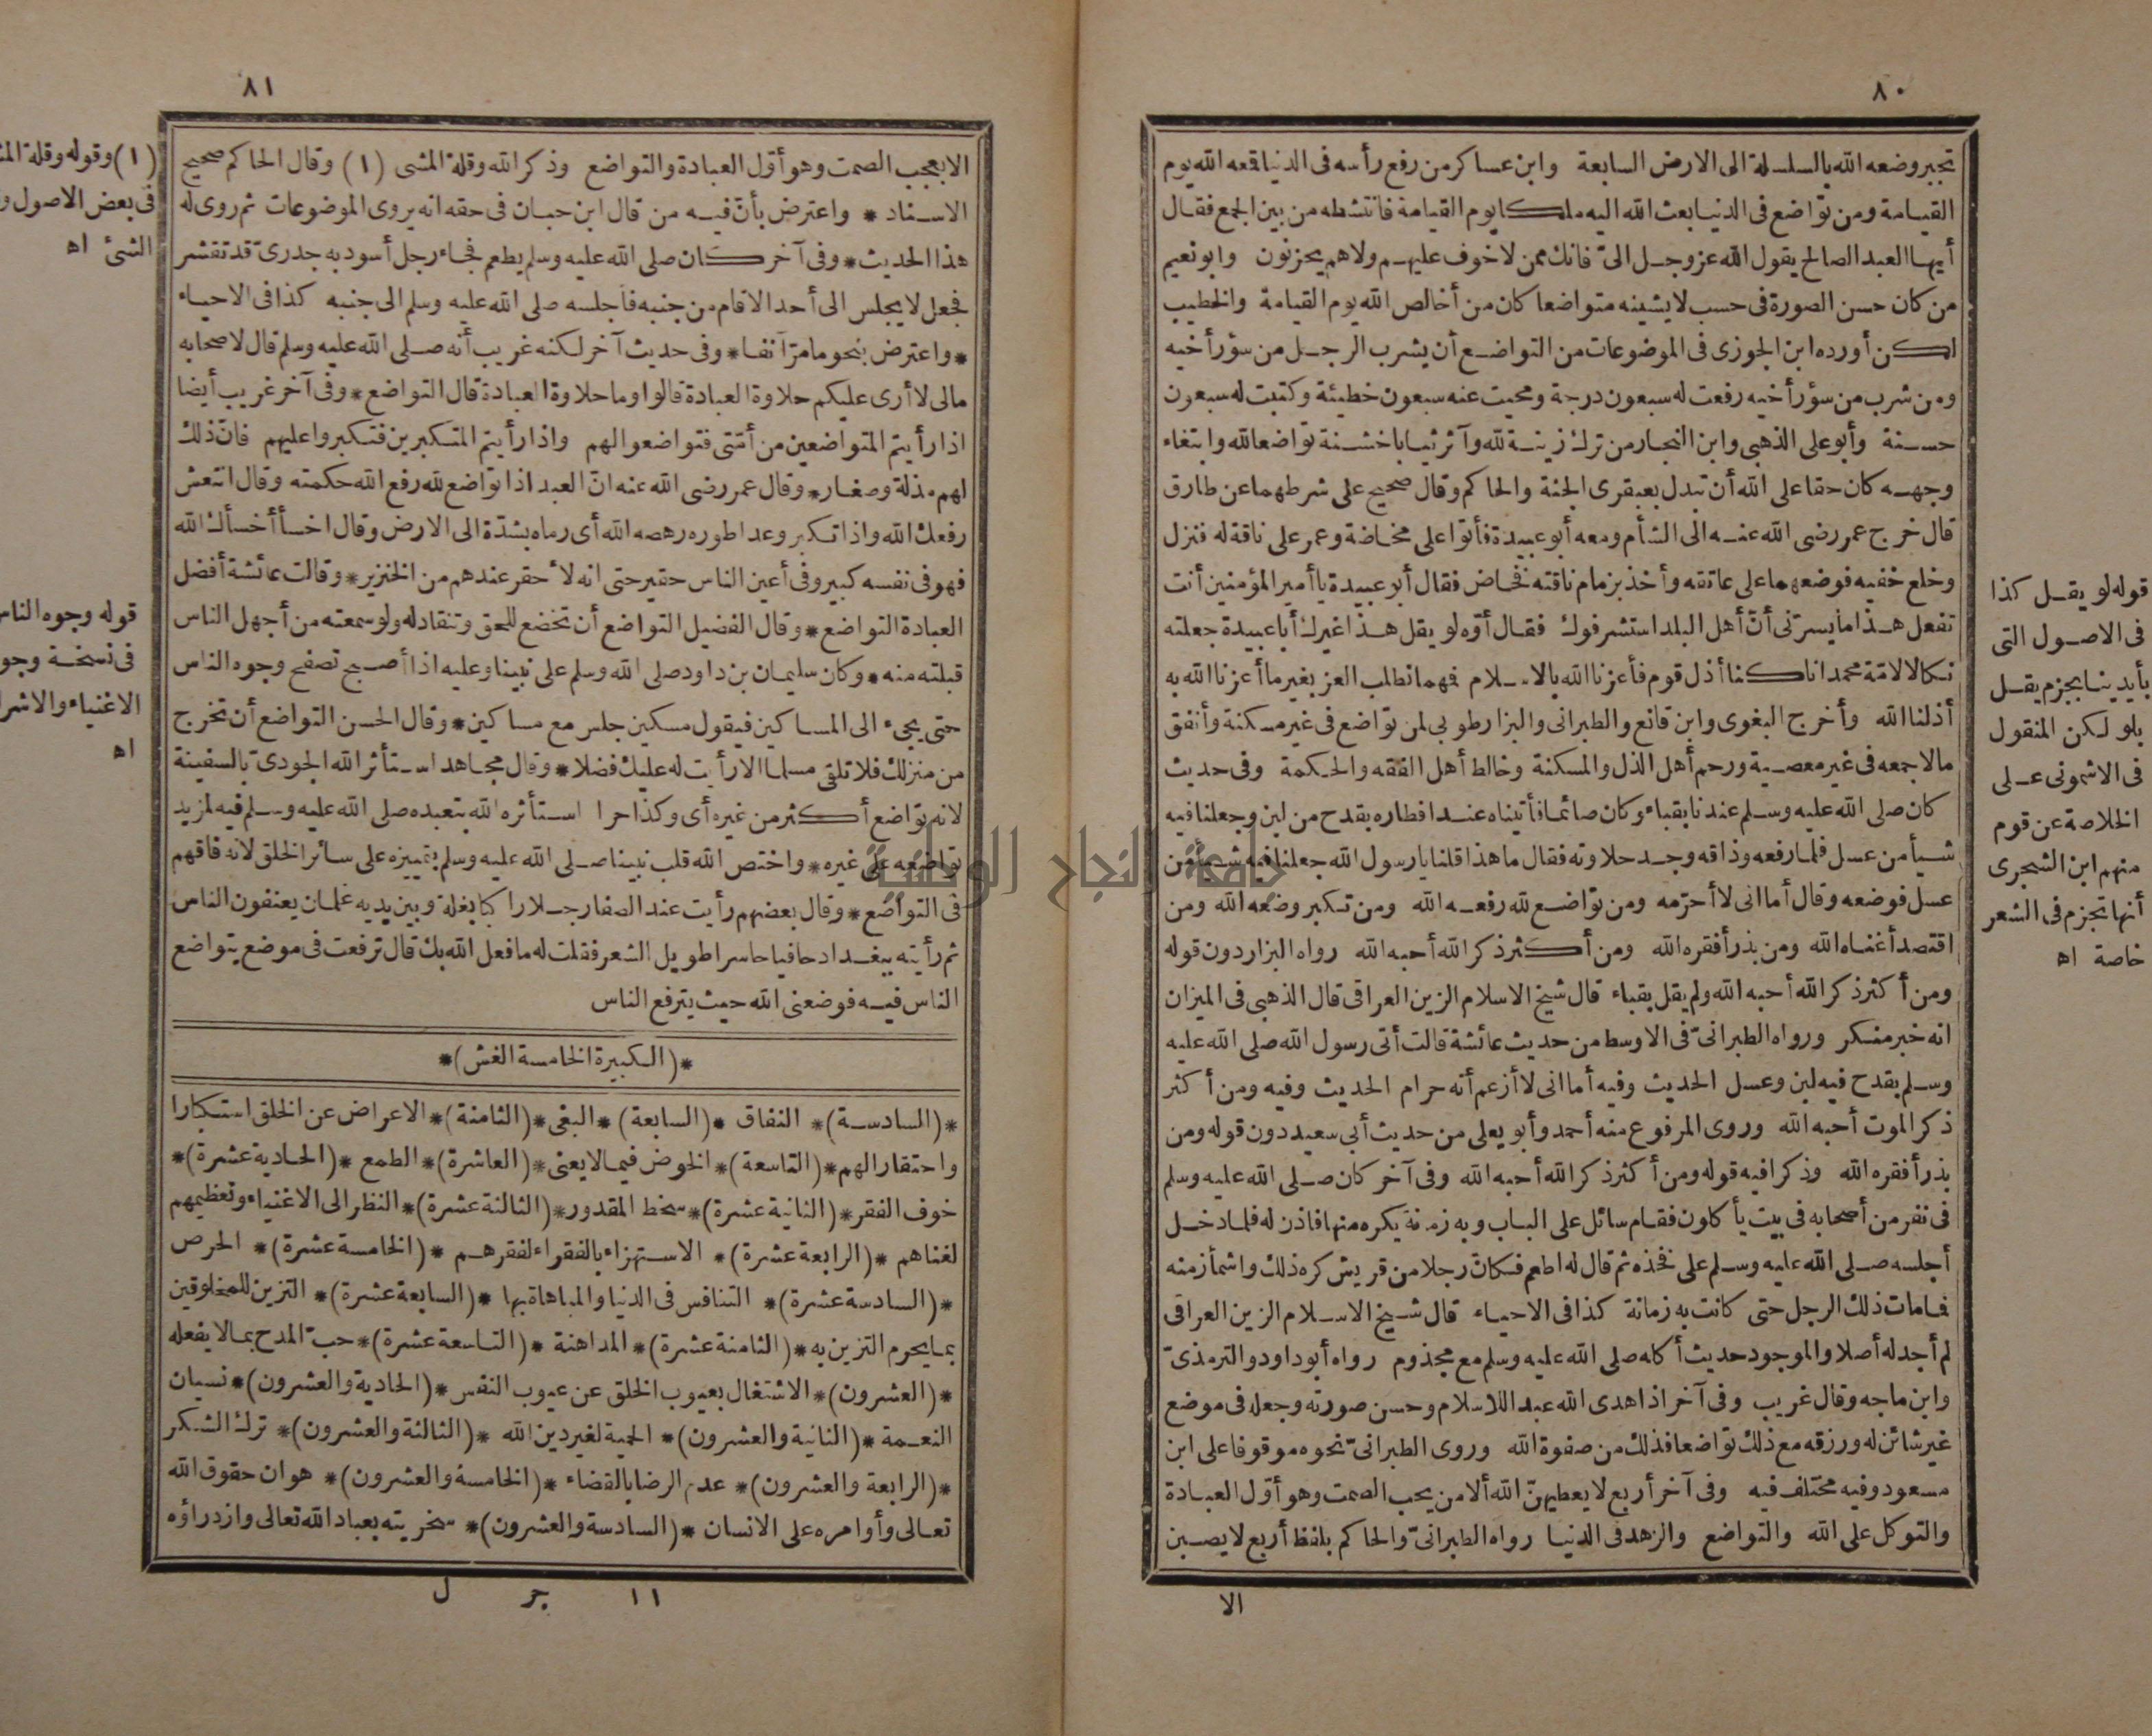 ٨٠
تجبر وضعه الله بالسلسلة الى الارض السابعة وابن عساكر من رفع رأسه فى الدنيا قمعه الله يوم
القيامة ومن تواضع فى الدنيا بعث الله اليه ملكا يوم القيامة فانتشطه من بين الجمع فقال
أيها العبد الصالح يقول الله عز وجل الىّ فانك ممن لا خوف عليهم ولا هم يحزنون وابو نعيم
من كان حسن الصورة فى حسب لا يشينه متواضعا كان من أخالص الله يوم القيامة والخطيب
لكن أورده ابن الجوزى فى الموضوعات من التواضع أن يشرب الرجل من سؤر أخيه
ومن شرب من سؤر أخيه رفعت له سبعون درجة ومحيت عنه سبعون خطيئة وكتبت له سبعون
حسنة وأبو على الذهبى وابن النجار من ترك زينة لله وآثر ثيابا خشنة تواضعا لله وابتغاء
وجهه كان حقا على الله أن تبدل بعبقرى الجنة والحاكم وقال صحيح على شرطهما عن طارق
قال خرج عمر رضى الله عنه الى الشأم ومعه أبو عبيدة فأتوا على مخاضة وعمر على ناقة له فنزل
وخلع خفيه فوضعهما على عاتقه وأخذ بزمام ناقته فخاض فقال أبو عبيدة يا أمير المؤمنين أنت
تفعل هذا ما يسرنى أنّ أهل البلد استشرفوك فقال أوّه لو يقل هذا غيرك أبا عبيدة جعلته
نكالا لامّة محمد انا كنا أذل قوم فأعزنا الله بالاسلام فمهما نطلب العز بغير ما أعزنا الله به
أذلنا الله وأخرج البغوى وابن قانع والطبرانى والبزار طوبى لمن تواضع فى غير مسكنة وأنفق
مالا جمعه فى غير معصية ورحم أهل الذل والمسكنة وخالط أهل الفقه والحكمة وفى حديث
كان صلى الله عليه وسلم عندنا بقباء وكان صائما فأتيناه عند افطاره بقدح من لبن وجعلنا فيه
شيأ من عسل فلما رفعه وذاقه وجد حلاوته فقال ما هذا قلنا يا رسول الله جعلنا فيه شيأ من
عسل فوضعه وقال أما انى لا أحرّمه ومن تواضع لله رفعه الله ومن تكبر وضعه الله ومن
اقتصد أغناه الله ومن بذر أفقره الله ومن أكثر ذكر الله أحبه الله رواه البزار دون قوله
ومن أكثر ذكر الله أحبه الله ولم يقل بقباء قال شيخ الاسلام الزين العراقى قال الذهبى فى الميزان
انه خبر منكر ورواه الطبرانىّ فى الاوسط من حديث عائشة قالت أتى رسول الله صلى الله عليه
وسلم بقدح فيه لبن وعسل الحديث وفيه أما انى لا أزعم أنه حرام الحديث وفيه ومن أكثر
ذكر الموت أحبه الله وروى المرفوع منه أحمد وأبو يعلى من حديث أبى سعيد دون قوله ومن
بذر أفقره الله وذكرا فيه قوله ومن أكثر ذكر الله أحبه الله وفى آخر كان صلى الله عليه وسلم
فى نفر من أصحابه فى بيت يأكلون فقام سائل على الباب وبه زمنة يكره منها فاذن له فلما دخل
أجلسه صلى الله عليه وسلم على فخذه ثم قال له اطعم فكانّ رجلا من قريش كره ذلك واشمأز منه
فما مات ذلك الرجل حتى كانت به زمانة كذا فى الاحياء قال شيخ الاسلام الزين العراقى
لم أجد له أصلا والموجود حديث أكله صلى الله عليه وسلم مع مجذوم رواه أبو داود والترمذىّ
وابن ماجه وقال غريب وفى آخر اذا هدى الله عبدا للاسلام وحسن صورته وجعله فى موضع
غير شائن له ورزقه مع ذلك تواضعا فذلك من صفوة الله وروى الطبرانىّ نحوه موقوفا على ابن
مسعود وفيه مختلف فيه وفى آخر أربع لا يعطيهنّ الله ألا من يحب الصمت وهو أوّل العبادة
والتوكل على الله والتواضع والزهد فى الدنيا رواه الطبرانىّ والحاكم بلفظ أربع لا يصبن
الا
قوله لو يقل كذا
فى الاصول التى
بأيدينا بجزم يقل
بلو لكن المنقول
فى الاشمونى على
الخلاصة عن قوم
منهم ابن الشجرى
أنها تجزم فى الشعر
خاصة اه
٨١
الا بعجب الصمت وهو أوّل العبادة والتواضع وذكر الله وقلة المشى (١) وقال الحاكم صحيح
الاسناد * واعترض بأنّ فيه من قال ابن حبان فى حقه انه يروى الموضوعات ثم روى له
هذا الحديث * وفى آخر كان صلى الله عليه وسلم يطعم فجاء رجل أسود به جدرىّ قد تقشر
فجعل لا يجلس الى أحد الا قام من جنبه فأجلسه صلى الله عليه وسلم الى جنبه كذا فى الاحياء
* واعترض بنحو ما مرّ آنفا * وفى حديث آخر لكنه غريب أنه صلى الله عليه وسلم قال لاصحابه
مالى لا أرى عليكم حلاوة العبادة قالوا وما حلاوة العبادة قال التواضع * وفى آخر غريب أيضا
اذا رأيتم المتواضعين من أمّتى فتواضعوا لهم واذا رأيتم المتكبرين فتكبروا عليهم فانّ ذلك
لهم مذلة وصغار * وقال عمر رضى الله عنه انّ العبد اذا تواضع لله رفع الله حكمته وقال انتعش
رفعك الله واذا تكبر وعدا طوره رهصه الله أى رماه بشدّة الى الارض وقال اخسأ أخسأك الله
فهو فى نفسه كبير وفى أعين الناس حقير حتى انه لأحقر عندهم من الخنزير * وقالت عائشة أفضل
العبادة التواضع * وقال الفضيل التواضع أن تخضع للحق وتنقاد له ولو سمعته من أجهل الناس
قبلته منه * وكان سليمان بن داود صلى الله وسلم على نبينا وعليه اذا أصبح تصفح وجوه الناس
حتى يجىء الى المساكين فيقول مسكين جلس مع مساكين * وقال الحسن التواضع أن تخرج
من منزلك فلا تلقى مسلما الا رأيت له عليك فضلا * وقال مجاهد استأثر الله الجودىّ بالسفينة
لانه تواضع أكثر من غيره أى وكذا حرا استأثره الله بتعبده صلى الله عليه وسلم فيه لمزيد
تواضعه على غيره * واختص الله قلب نبينا صلى الله عليه وسلم بتمييزه على سائر الخلق لانه فاقهم
فى التواضع * وقال بعضهم رأيت عند الصفا رجلا راكبا بغلة وبين يديه غلمان يعنفون الناس
ثم رأيته ببغداد حافيا حاسرا طويل الشعر فقلت له ما فعل الله بك قال ترفعت فى موضع يتواضع
الناس فيه فوضعنى الله حيث يترفع الناس
*(الكبيرة الخامسة الغش)*
*(السادسة)* النفاق *(السابعة)* البغى *(الثامنة)* الاعراض عن الخلق استكبارا
واحتقارا لهم *(التاسعة)* الخوض فيما لا يعنى *(العاشرة)* الطمع *(الحادية عشرة)*
خوف الفقر *(الثانية عشرة)* سخط المقدور *(الثالثة عشرة)* النظر الى الاغنياء وتعظيمهم
لغناهم *(الرابعة عشرة)* الاستهزاء بالفقراء لفقرهم *(الخامسة عشرة)* الحرص
*(السادسة عشرة)* التنافس فى الدنيا والمباهاة بها *(السابعة عشرة)* التزين للمخلوقين
بما يحرم التزين به *(الثامنة عشرة)* المداهنة *(التاسعة عشرة)* حبّ المدح بما لا يفعله
*(العشرون)* الاشتغال بعيوب الخلق عن عيوب النفس *(الحادية والعشرون)* نسيان
النعمة *(الثانية والعشرون)* الحمية لغير دين الله *(الثالثة والعشرون)* ترك الشكر
*(الرابعة والعشرون)* عدم الرضا بالقضاء *(الخامسة والعشرون)* هوان حقوق الله
تعالى وأوامره على الانسان *(السادسة والعشرون)* سخريته بعباد الله تعالى وازدراؤه
١١ جر ل
(١) وقوله وقلة
فى بعض الاصول
الشئ اه
قوله وجوه الناس
فى نسخة
الاغنياء
اه
جامعة النجاح الوطنية